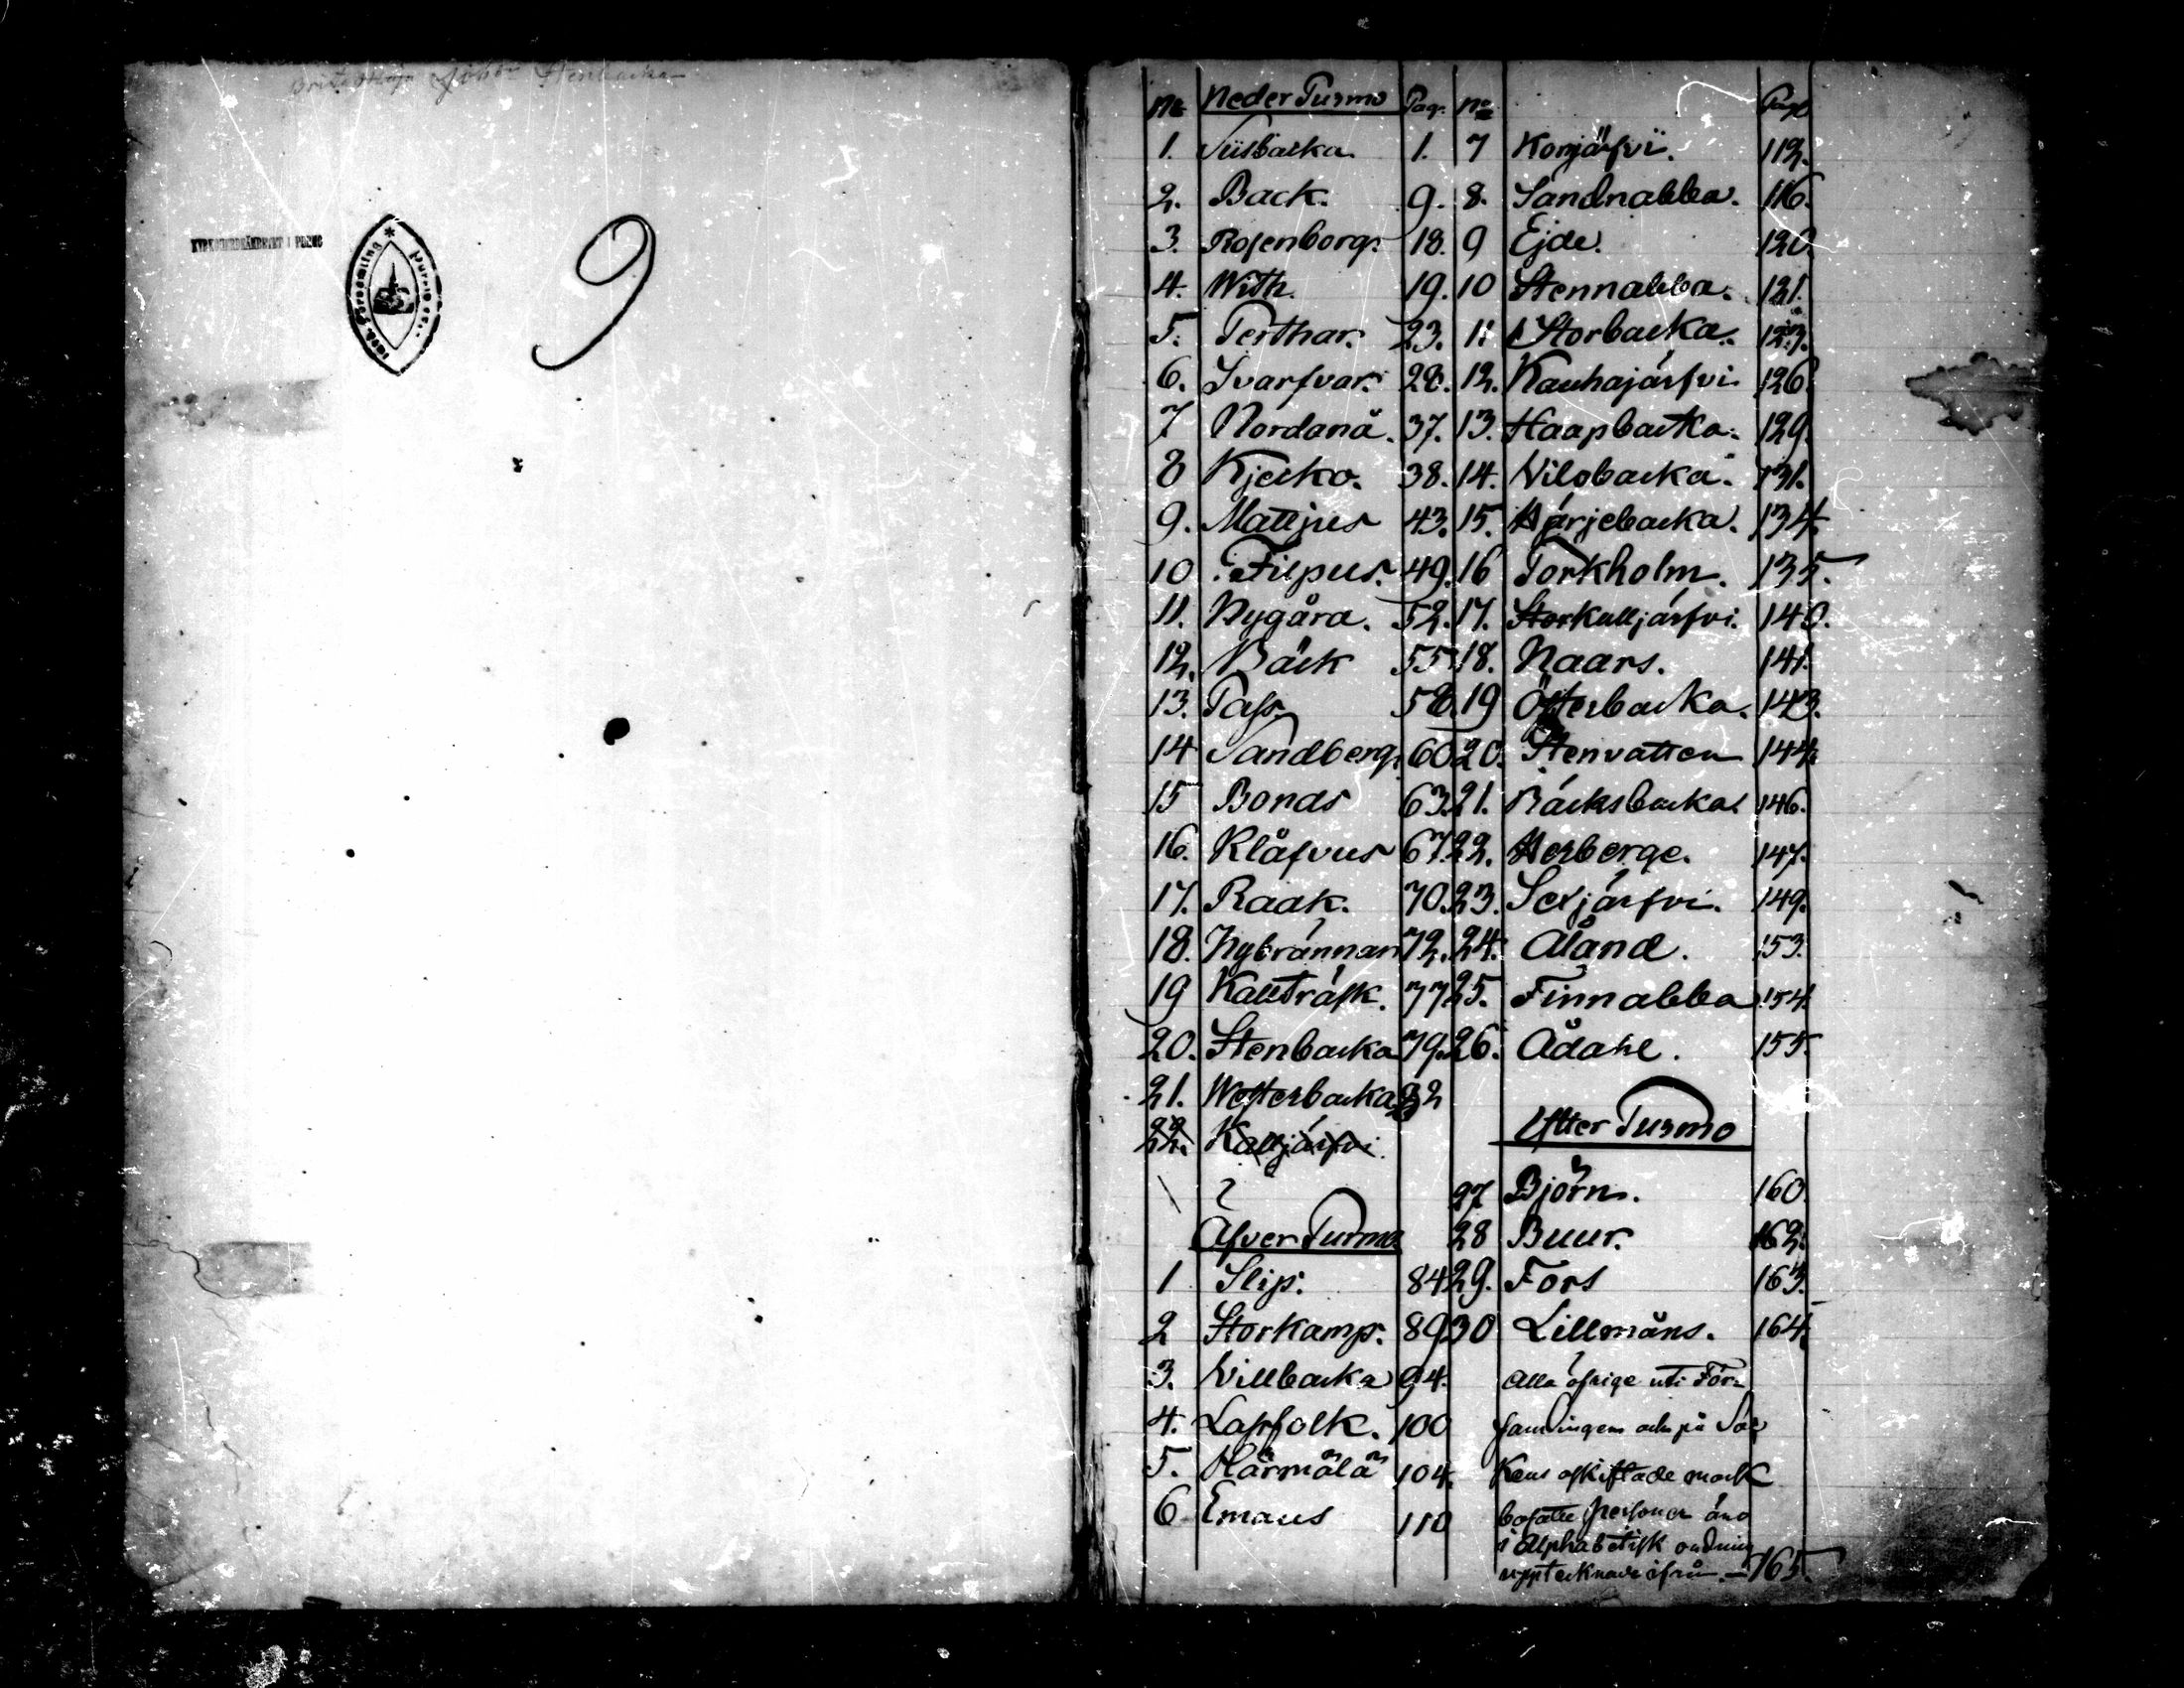 KYRKOHERDÄMBETET I PURMO
9
No Neder Purmo Pag. No Pag.
1. Siisbacka. 1. 7 Konjärfvi. 112.
2. Back. 9. 8. Sandnabba. 116.
3. Rosenborg. 18. 9 Ejde. 120.
4. With. 19. 10 Stennabba. 121.
5. Perthar. 23. 11 Storbacka. 123.
6. Svarfvar. 28. 12. Kauhajärfvi 126.
7 Nordanå. 37. 13. Haapbacka. 129.
8 Kjecko. 38. 14. Vilobacka. 131.
9. Mattjus 43. 15. Härjebacka. 134.
10 Filpus. 49. 16 Torkholm. 135.
11. Nygård. 52. 17. Storkulljärfvi. 140.
12. Bäck 55. 18. Naars. 141.
13. Pass. 58. 19 Österbacka. 143.
14 Sandberg. 60. 20. Stenvatten 144.
15 Bonds 63. 21. Bäcksbacka. 146.
16. Klåfvus 67. 22. Herberge. 147.
17. Raak. 70. 23. Sexjärfvi. 149.
18. Nybrännan 72. 24. Åland. 153.
19 Kallträsk. 77. 25. Finnabba 154.
20. Stenbacka 79. 26. Ådahl. 155.
21. Westerbacka 82
22. Kalljärfvi.
Ytter Purmo
27 Björn. 160.
Öfver Purmo 28 Buur. 162.
1 Slip. 84 29. Fors 163.
2 Storkamp. 89 30 Lillmåns. 164.
3. Villbacka 94. Alla öfrige uti För-
4. Lassfolk. 100 samlingen och på Soc
5. Härmälä 104. kens oskiftade mark
6 Emaus 110 bosatte personer äro
i Alphabetisk ordning
upptecknade ifrån. — 165.